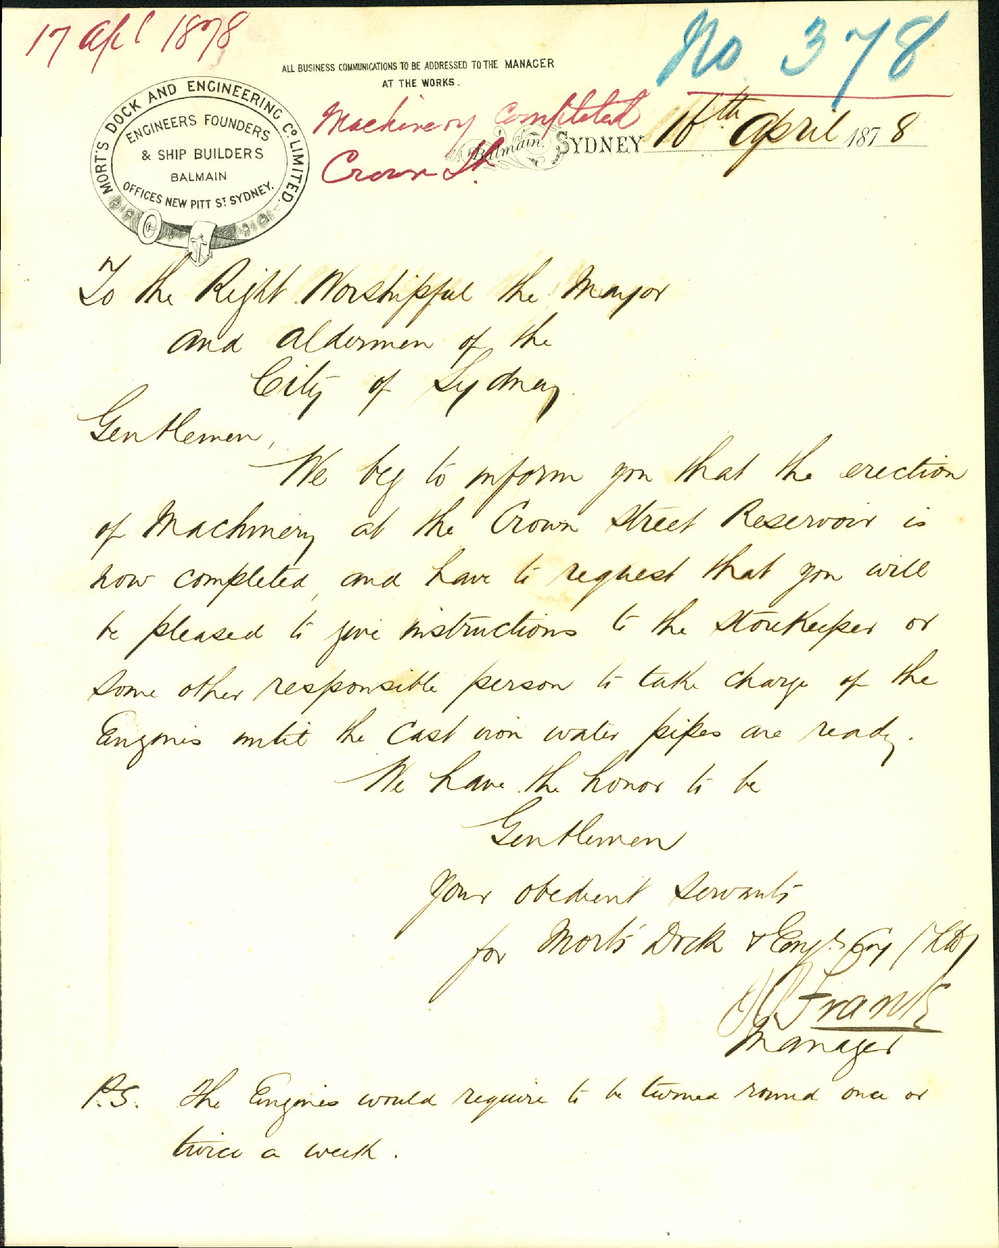 17 Apl 1878
No 378
ALL BUSINESS COMMUNICATIONS TO BE ADDRESSED TO THE MANAGER
AT THE WORKS.
MORT'S DOCK AND ENGINEERING Co. LIMITED.
ENGINEERS FOUNDERS
& SHIP BUILDERS
BALMAIN
OFFICES NEW PITT ST. SYDNEY.
Machinery Completed
Crown St.
Balmain. SYDNEY 16th April 1878
To the Right Worshipful the Mayor
and Aldermen of the
City of Sydney.
Gentlemen,
We beg to inform you that the erection
of Machinery at the Crown Street Reservoir is
now completed, and have to request that you will
be pleased to give instructions to the Storekeeper or
some other responsible person to take charge of the
Engines until the Cast iron water pipes are ready.
We have the honor to be
Gentlemen
Your obedient Servants
for Mort's Dock & Engg. Coy (Ltd)
Frank
Manager
P.S. The Engines would require to be turned round once or
twice a week.